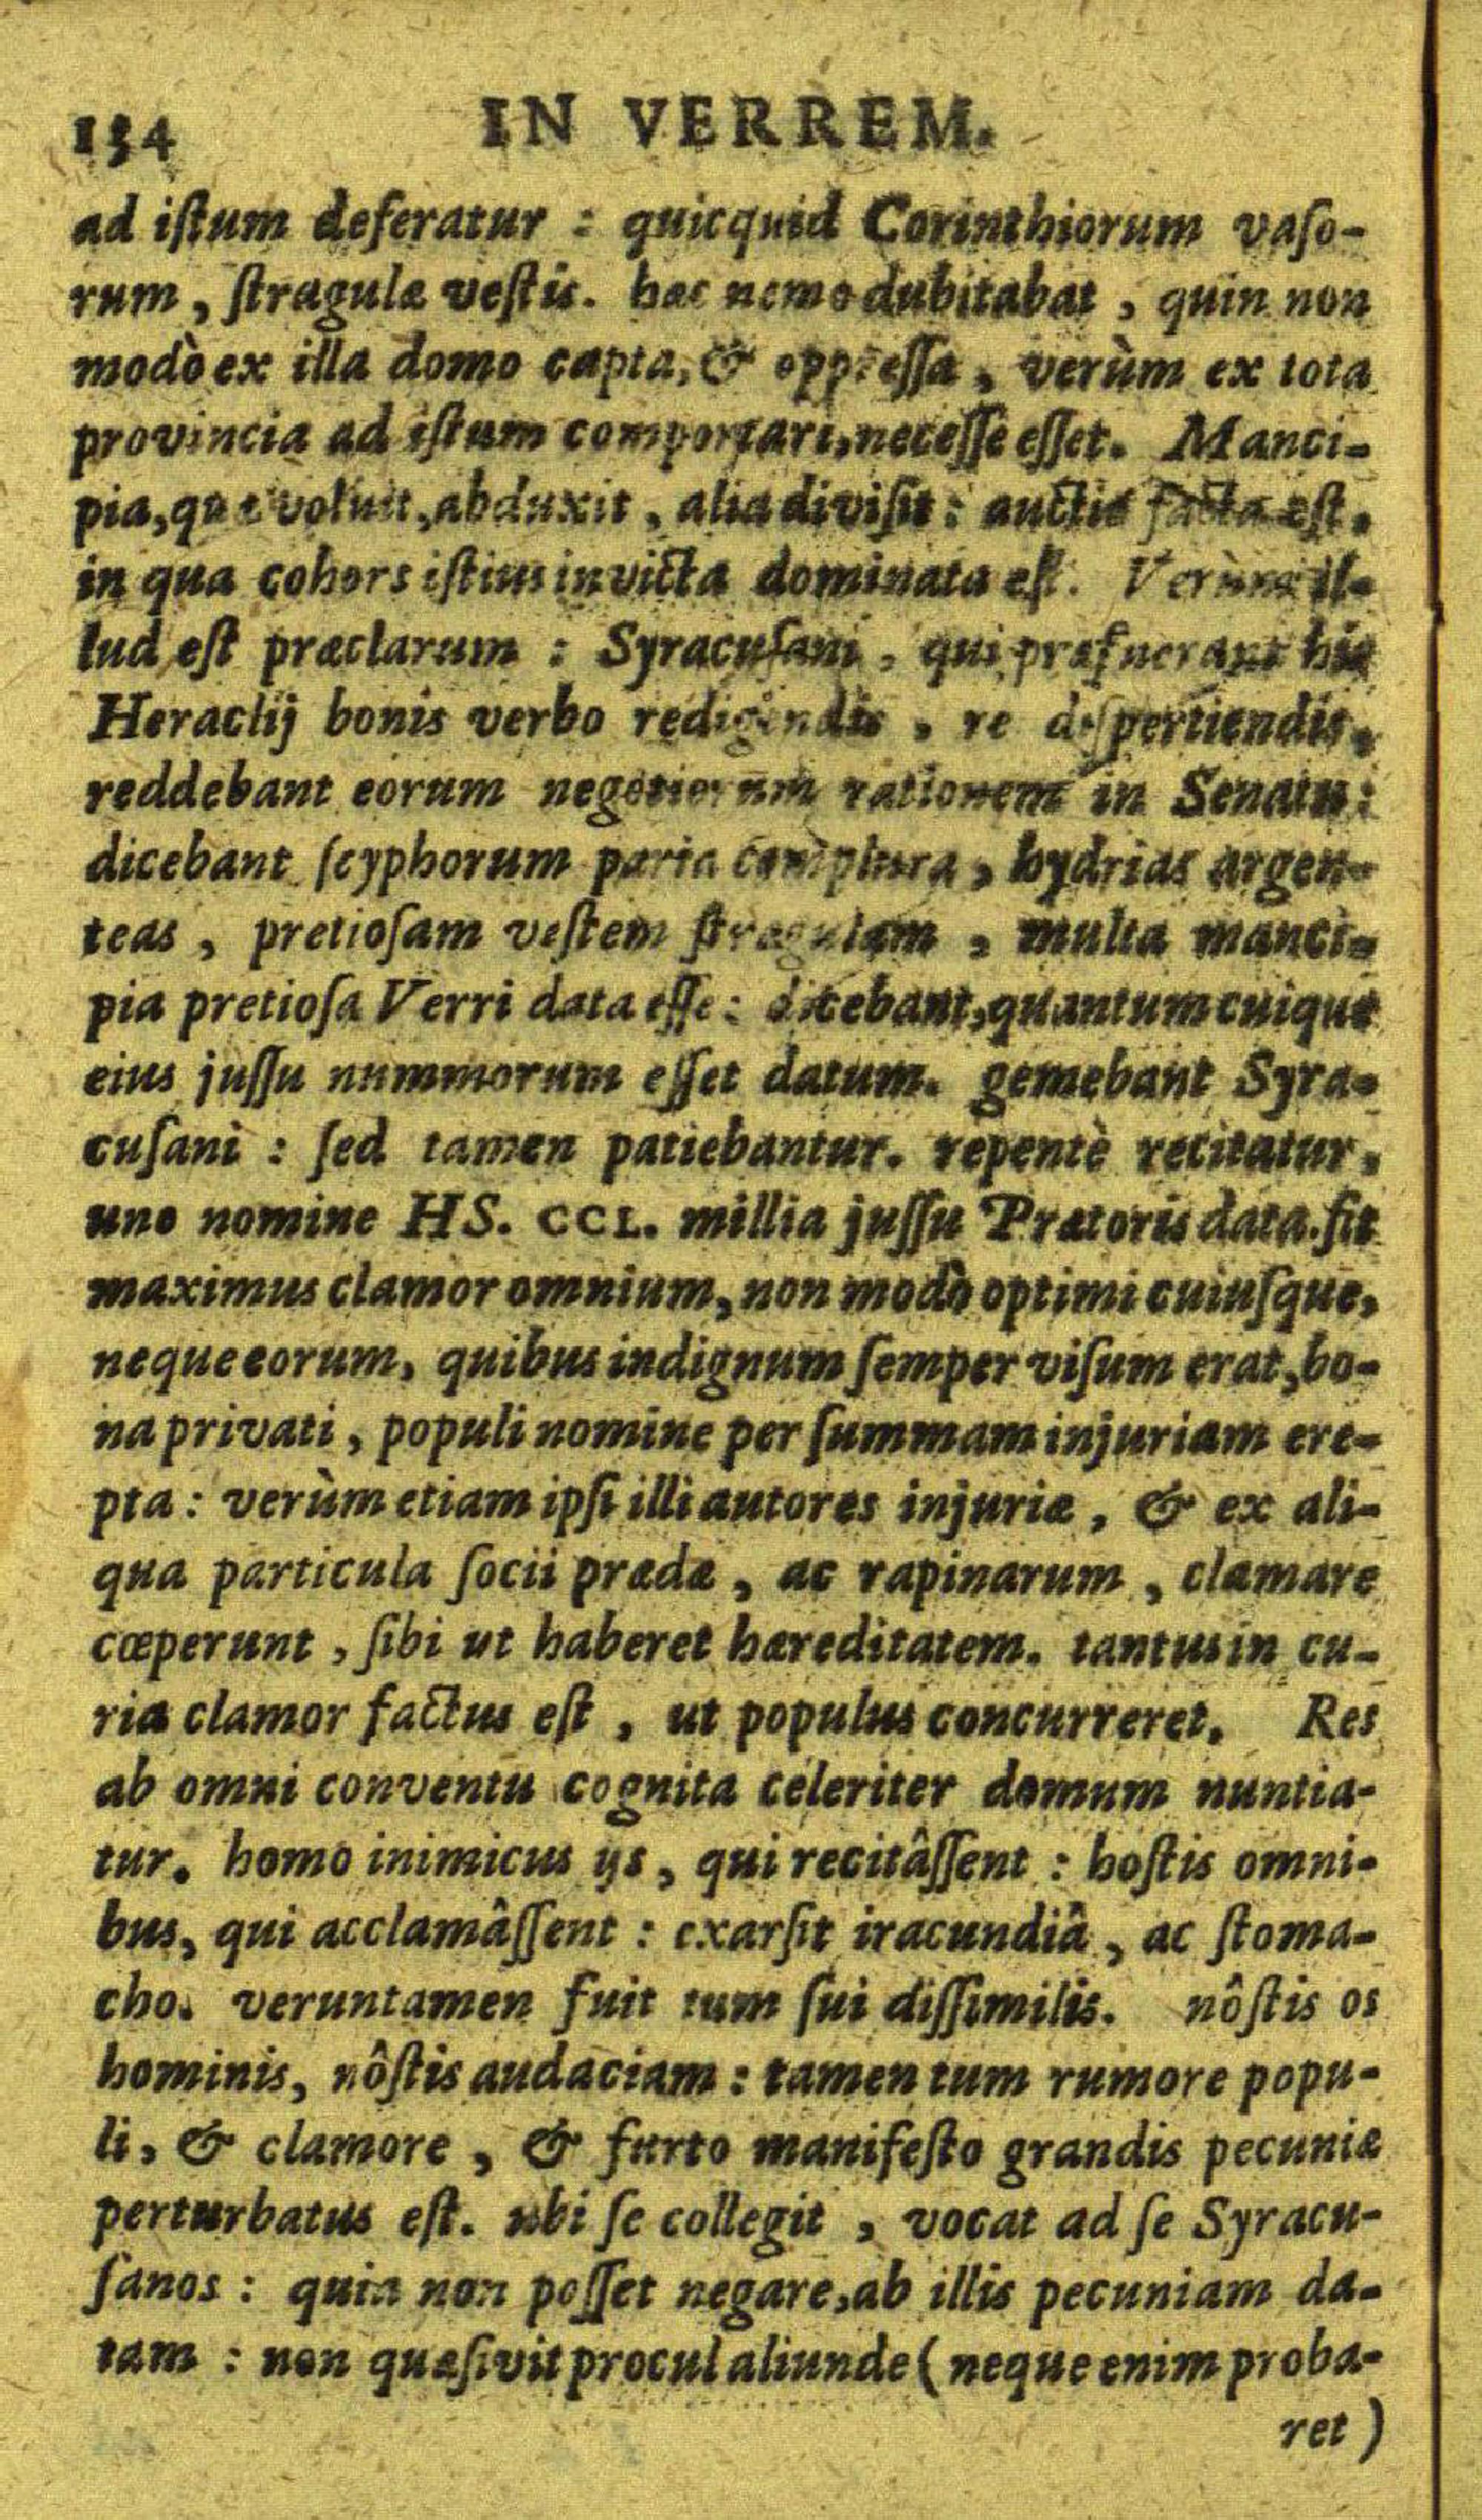 134 IN VERREM.
ad iſtum deferatur : quicquid Corinthiorum vaſo-
rum, ſtragulæ veſtis. hæc nemo dubitabat, quin non
modò ex illa domo capta, & oppreſſa, verùm ex tota
provincia ad iſtum comportari, neceſſe eſſet. Manci-
pia, quæ voluit, abduxit, alia diviſit : auctio facta eſt,
in qua cohors iſtius invicta dominata eſt. Verùm il-
lud eſt præclarum : Syracuſani, qui præfuerant his
Heraclij bonis verbo redigendis, re diſpertiendis,
reddebant eorum negotiorum rationem in Senatu :
dicebant ſcyphorum paria complura, hydrias argen-
teas, pretioſam veſtem ſtragulam, multa manci-
pia pretioſa Verri data eſſe : dicebant, quantum cuique
eius juſſu nummorum eſſet datum. gemebant Syra-
cuſani : ſed tamen patiebantur. repentè recitatur,
uno nomine HS. CCL. millia juſſu Prætoris data. fit
maximus clamor omnium, non modò optimi cuiuſque,
neque eorum, quibus indignum ſemper viſum erat, bo-
na privati, populi nomine per ſummam injuriam ere-
pta : verùm etiam ipſi illi autores injuriæ, & ex ali-
qua particula ſocii prædæ, ac rapinarum, clamare
cœperunt, ſibi ut haberet hæreditatem. tantus in cu-
ria clamor factus eſt, ut populus concurreret. Res
ab omni conventu cognita celeriter domum nuntia-
tur. homo inimicus ijs, qui recitâſſent : hoſtis omni-
bus, qui acclamâſſent : exarſit iracundiâ, ac ſtoma-
cho. veruntamen fuit tum ſui diſſimilis. nôſtis os
hominis, nôſtis audaciam : tamen tum rumore popu-
li, & clamore, & furto manifeſto grandis pecuniæ
perturbatus eſt. ubi ſe collegit, vocat ad ſe Syracu-
ſanos : quia non poſſet negare, ab illis pecuniam da-
tam : non quæſivit procul aliunde (neque enim proba-
ret)